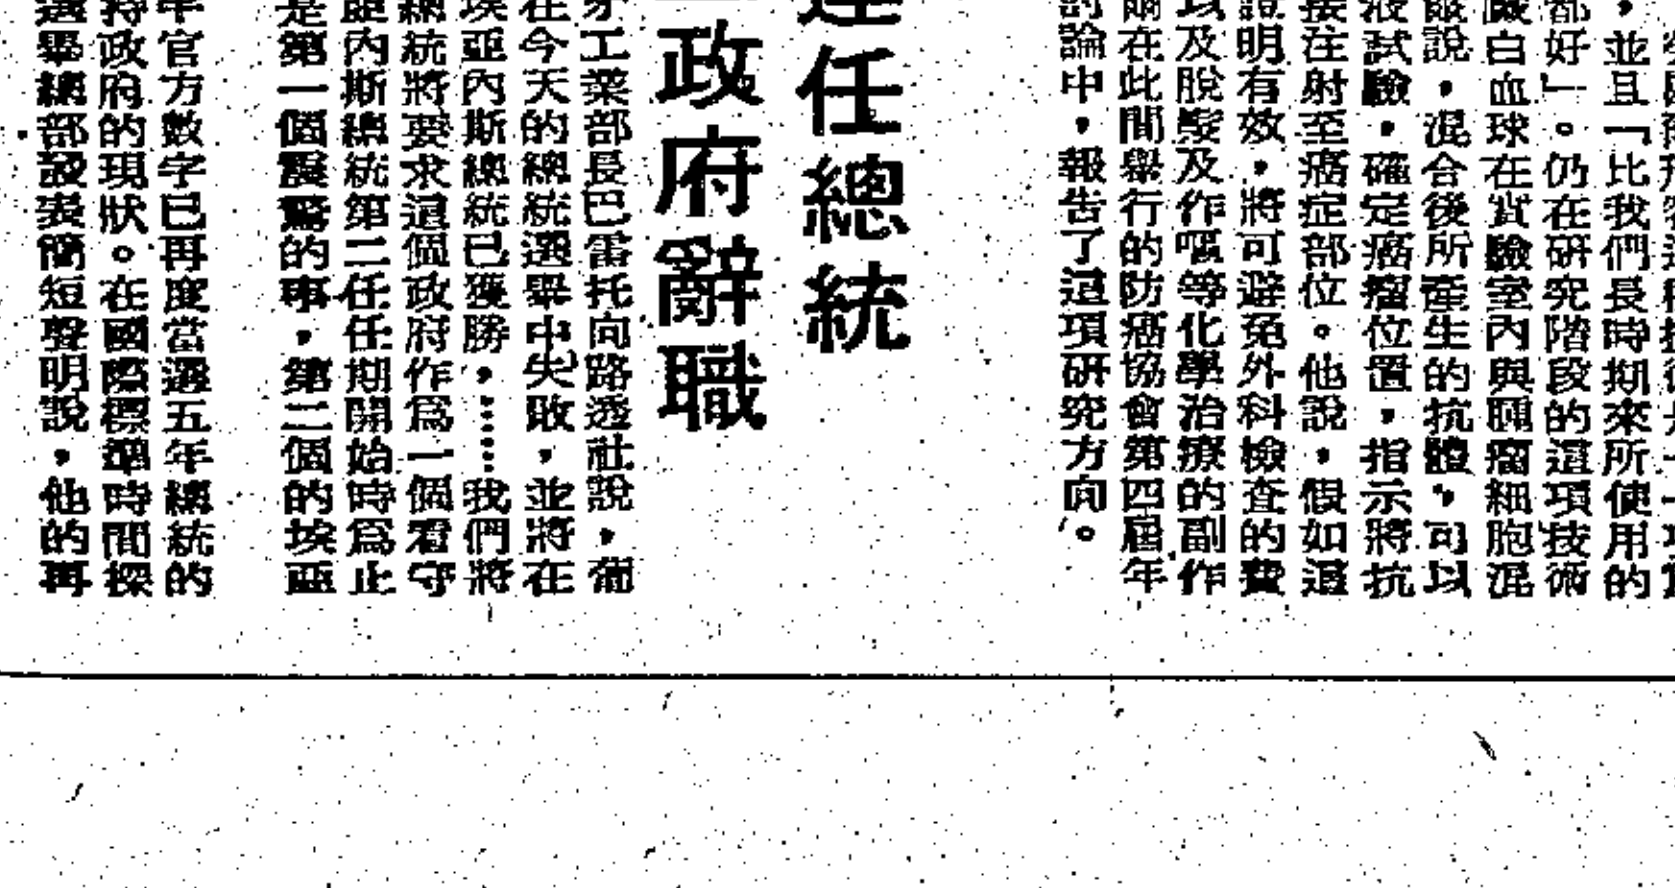 ，並且「比我們長時期來所使用的
都好」。仍在研究階段的這項技術
白血球在實驗室內與腫瘤細胞混
說，混合後所產生的抗體，可以
液試驗，確定癌瘤位置，指示將抗
接注射至癌症部位。他說，假如這
證明有效，將可避免外科檢查的費
以及脫髮及作嘔等化學治療的副作
爾在此間舉行的防癌協會第四屆年
討論中，報告了這項研究方向。
連任總統
政府辭職
牙工業部長巴雷托向路透社說，葡
在今天的總統選舉中失敗，並將在
埃亞內斯總統已獲勝，……我們將
總統將要求這個政府作爲一個看守
亞內斯總統第二任任期開始時爲止
是第一個震驚的事，第二個的埃亞
年官方數字已再度當選五年總統的
持政府的現狀。在國際標準時間探
選舉總部發表簡短聲明說，他的再